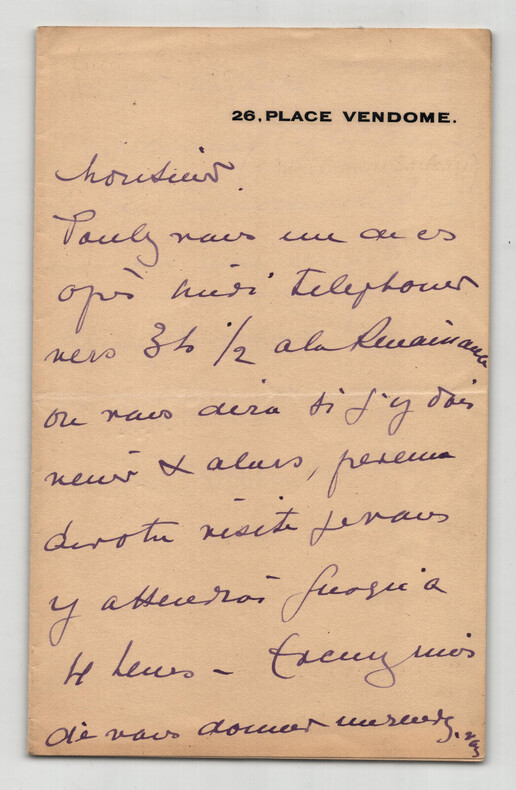 26, PLACE VENDOME.
Monsieur.
Voulez vous un de ces
après midi telephoner
vers 3h 1/2 a la Renaissance
on vous dira si j'y dois
venir & alors, prevenu
de votre visite je vous
y attendrai jusqu'a
4 heures -
de vous donner